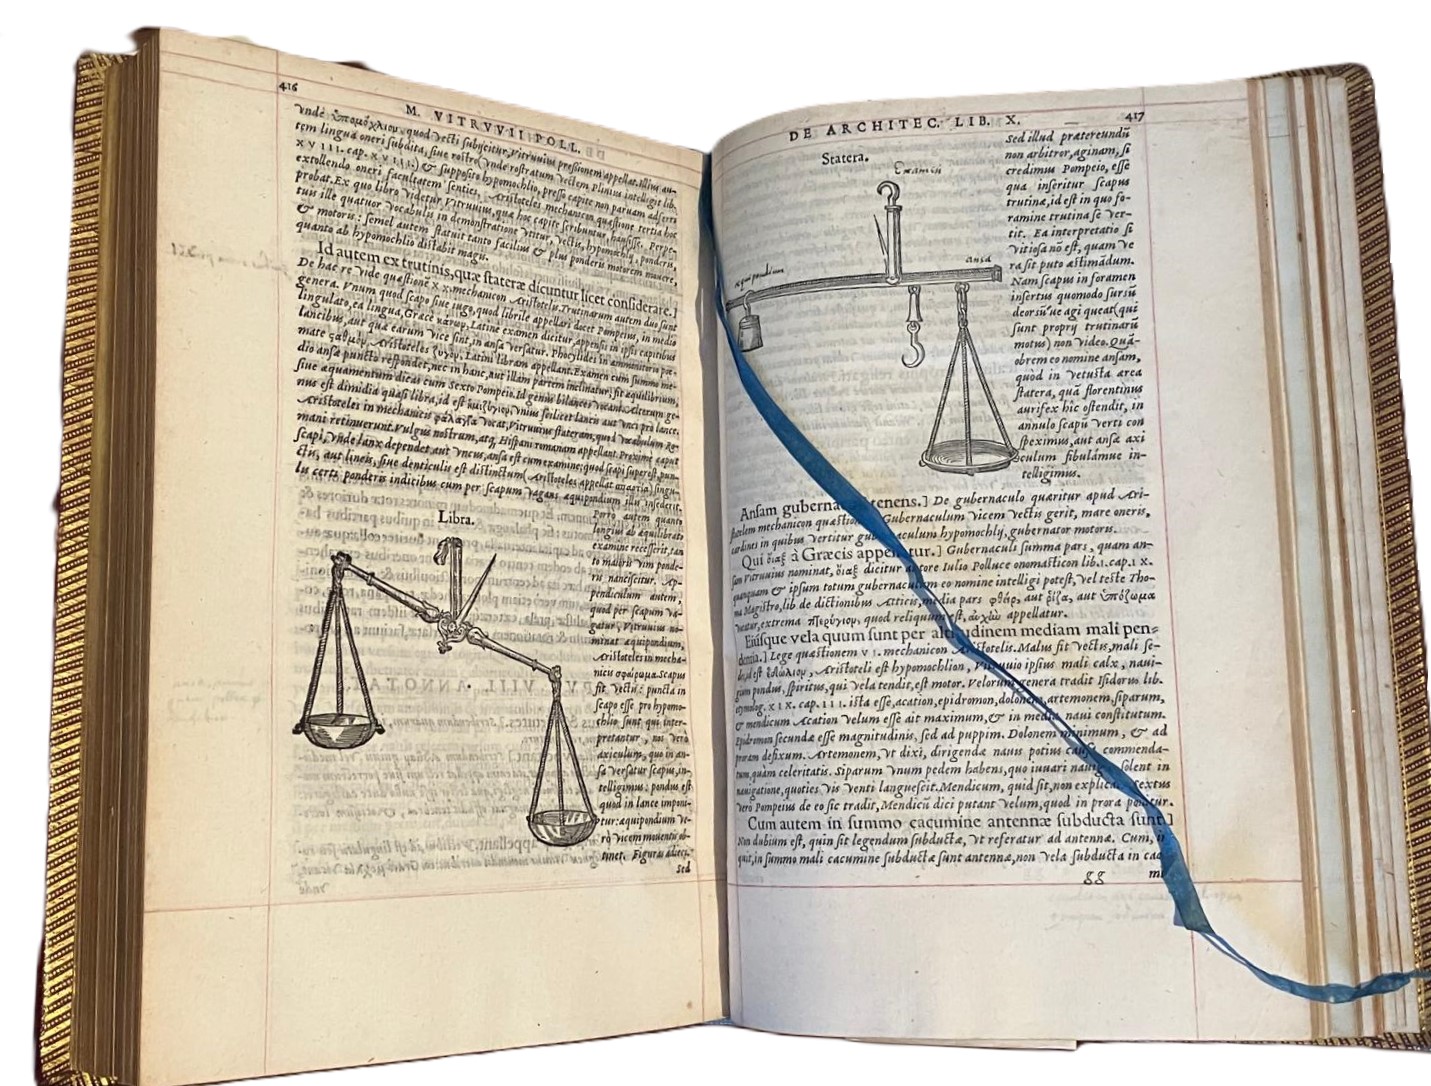 416
M. VITRVVII POLL.
vnde ὑπομόχλιον, quod vecti subijcitur, Vitruuius pressionem appellat. Illius au-
tem lingua oneri subdita, siue rostro (vnde rostratum vectem Plinius intelligit lib.
XVIII. cap. XVIII.) & supposito hypomochlio, presso capite non paruam adferri
extollendo oneri facultatem senties. Aristoteles mechanicon quæstione tertia hoc
probat. Ex quo libro videtur Vitruuius, quæ hoc capite scribuntur, hausisse. Perpe-
tuis ille quatuor vocabulis in demonstratione vtitur, vectis, hypomochlij, ponderis,
& motoris: semel autem statuit tanto facilius & plus ponderis motorem mouere,
quanto ab hypomochlio distabit magis.
Id autem ex trutinis, quæ stateræ dicuntur licet considerare.]
De hac re vide quæstionē XX. mechanicon Aristotelis. Trutinarum autem duo sunt
genera. Vnum quod scapo siue iugo, quod librile appellari docet Pompeius, in medio
lingulato, ea lingua, Græcè κανων, Latinè examen dicitur, appensis in ipsis capitibus
lancibus, aut quæ earum vice sint, in ansa versatur. Phocylides in ammonitorio poe-
mate ςαθμὸν, Aristoteles ζυγὸν. Latini libram appellant. Examen cum summo me-
dio ansæ puncto respondet, nec in hanc, aut illam partem inclinatur, fit æquilibrium,
siue æquamentum dicas cum Sexto Pompeio. Id genus bilances vocant. Alterum ge-
nus est dimidia quasi libra, id est vnius scilicet lancis aut vnci pro lance.
Aristoteles in mechanicis φάλαγγα vocat, Vitruuius stateram, quod vocabulum Ro-
mani retinuerunt. Vulgus nostrum, atq; Hispani romanam appellant. Proximè caput
scapi, vnde lanx dependet, aut vncus, ansa est cum examine: quod scapi superest, pun-
ctis, aut lineis, siue denticulis est distinctum (Aristoteles appellat σπαρτία) singu-
lis certi ponderis indicibus cum per scapum vagans æquipondium illis insederit.
Libra.
Porro autem quanto
longius ab æquilibrato
examine recesserit, tan
to maioris vim ponde-
ris nanciscitur. Ap-
pendiculum autem,
quod per scapum va-
gatur, Vitruuius no-
minat æquipondium,
Aristoteles in mecha-
nicis σφαίρωμα. Scapus
fit vectis: puncta in
scapo esse pro hypomo-
chlio sunt qui inter-
pretantur, nos verò
axiculum, quo in an-
sa versatur scapus, in-
telligimus: pondus est
quod in lance imponi-
tur: æquipondium ve-
rò vicem mouentis ob-
tinet. Figuras adieci,
sed
DE ARCHITEC. LIB. X.
417
Statera.
Examen
æquipondium
ansa
Sed illud prætereundū
non arbitror, aginam, si
credimus Pompeio, esse
qua inseritur scapus
trutinæ, id est in quo fo-
ramine trutina se ver-
tit. Ea interpretatio si
vitiosa nō est, quam ve
ra sit puto æstimādum.
Nam scapus in foramen
insertus quomodo sursū
deorsū́ue agi queat (qui
sunt proprij trutinarū
motus) non video. Quā-
obrem eo nomine ansam,
quòd in vetusta ærea
statera, quā florentinus
aurifex hîc ostendit, in
annulo scapū verti con
speximus, aut ansæ axi
culum fibulámue in-
telligimus.
Ansam guberna tenens.] De gubernaculo quæritur apud Ari-
stotelem mechanicon quæstio Gubernaculum vicem vectis gerit, mare oneris,
cardines in quibus vertitur gubernaculum hypomochlij, gubernator motoris.
Qui οἴαξ à Græcis appellatur.] Gubernaculi summa pars, quam an-
sam Vitruuius nominat, οἴαξ dicitur autore Iulio Polluce onomasticon lib. I. cap. IX.
quanquam & ipsum totum gubernaculum eo nomine intelligi potest, vel teste Tho-
ma Magistro, lib de dictionibus Atticis, media pars φθεὶρ, aut ῥίζα, aut ὑπόζωμα
vocatur, extrema πτερύγιον, quod reliquum est, αὐχὴν appellatur.
Eiusque vela quum sunt per altitudinem mediam mali pen-
dentia.] Lege quæstionem VI. mechanicon Aristotelis. Malus fit vectis, mali se-
des, id est Aristoteli est hypomochlion, Vitruuio ipsius mali calx, naui-
gium pondus, spiritus, qui vela tendit, est motor. Velorum genera tradit Isidorus lib.
etymolog. XIX. cap. III. ista esse, acation, epidromon, dolonem, artemonem, siparum,
& mendicum Acation velum esse ait maximum, & in media naui constitutum.
Epidromon secundæ esse magnitudinis, sed ad puppim. Dolonem minimum, & ad
proram defixum. Artemonem, vt dixi, dirigendæ nauis potius causa commenda-
tum, quàm celeritatis. Siparum vnum pedem habens, quo iuuari nauigia solent in
nauigatione, quoties vis venti languescit. Mendicum, quid sit, non explicat. Sextus
vero Pompeius de eo sic tradit, Mendici dici putant velum, quod in prora ponitur.
Cum autem in summo cacumine antennæ subductæ sunt.]
Non dubium est, quin sit legendum subductæ, vt referatur ad antennæ. Cum, in
quit, in summo mali cacumine subductæ sunt antennæ, non vela subducta in cac
gg